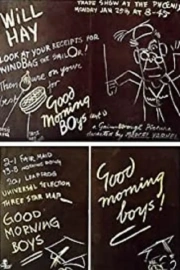 TRADE SHOW AT THE PHOENIX
MONDAY JAN 25th AT 8-45
WILL
HAY
LOOK AT YOUR RECEIPTS FOR
WINDBAG THE SAILOR!
Then
on your
for
Good
Morning
BOYS
a Gainsborough Picture
directed by MARCEL VARNEL
2-1 FAIR MAID
UNIVERSAL SELECTION
THREE STAR NAP
GOOD
MORNING
BOYS
Good
morning
boys!